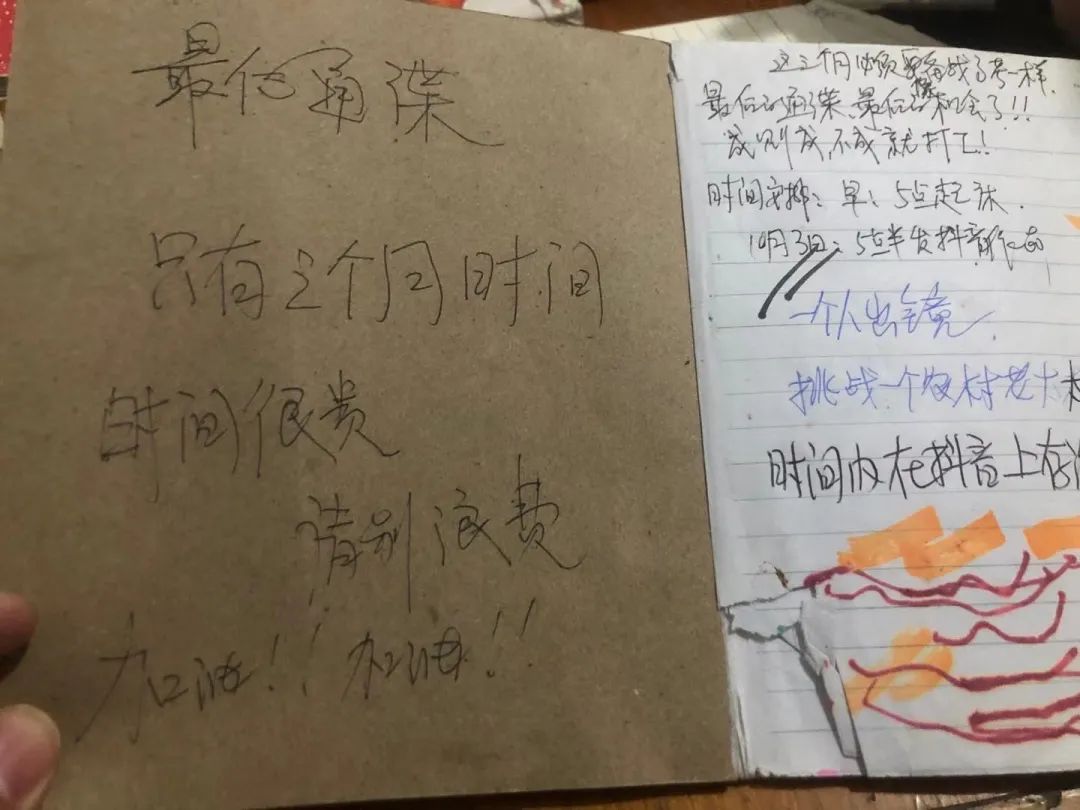 最后通牒
只有三个月时间
时间很贵
请别浪费
加油!! 加油!!
这三个月必须要像战高考一样.
最后的通牒、最后的机会了!!!
成则成,不成就打工!
时间安排: 早: 5点起床.
10月3日: 5点半发抖音作品
一个人出镜.
挑战一个农村老大
时间内在抖音上存